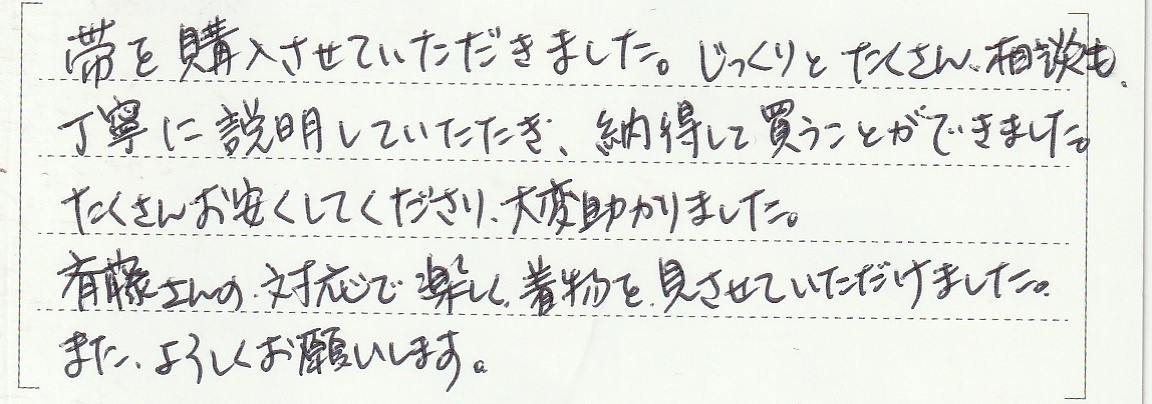 帯を購入させていただきました。じっくりとたくさん、相談も、
丁寧に説明していただき、納得して買うことができました。
たくさんお安くしてくださり、大変助かりました。
斉藤さんの対応で楽しく、着物を見させていただけました。
また、よろしくお願いします。